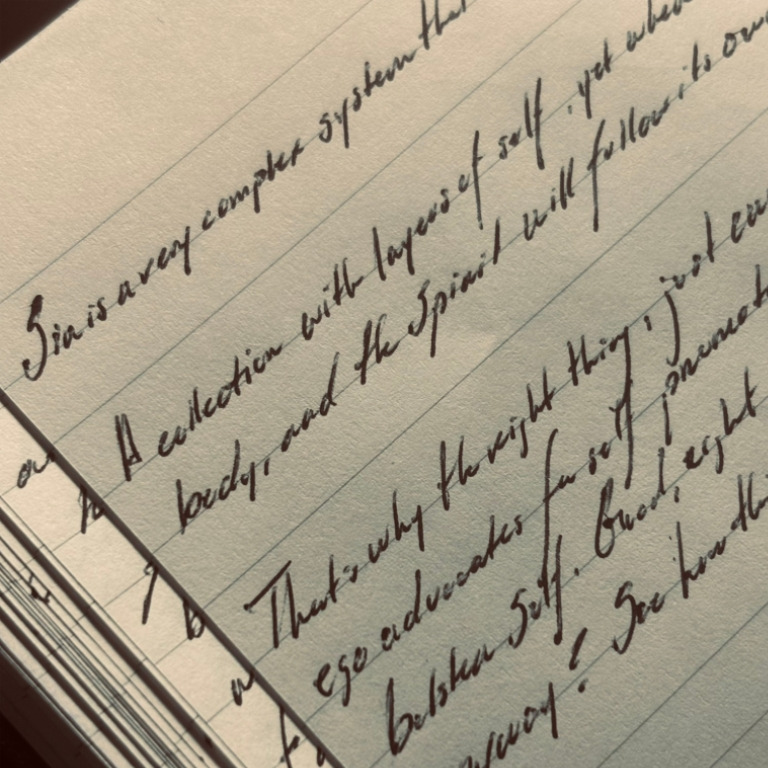 Sin is a very complex system that
A collection with layers of self, yet when
body, and the Spirit will follow its own
That's why the right thing, just
ego advocates for self
bolster Self. Good, right
anyway? See how